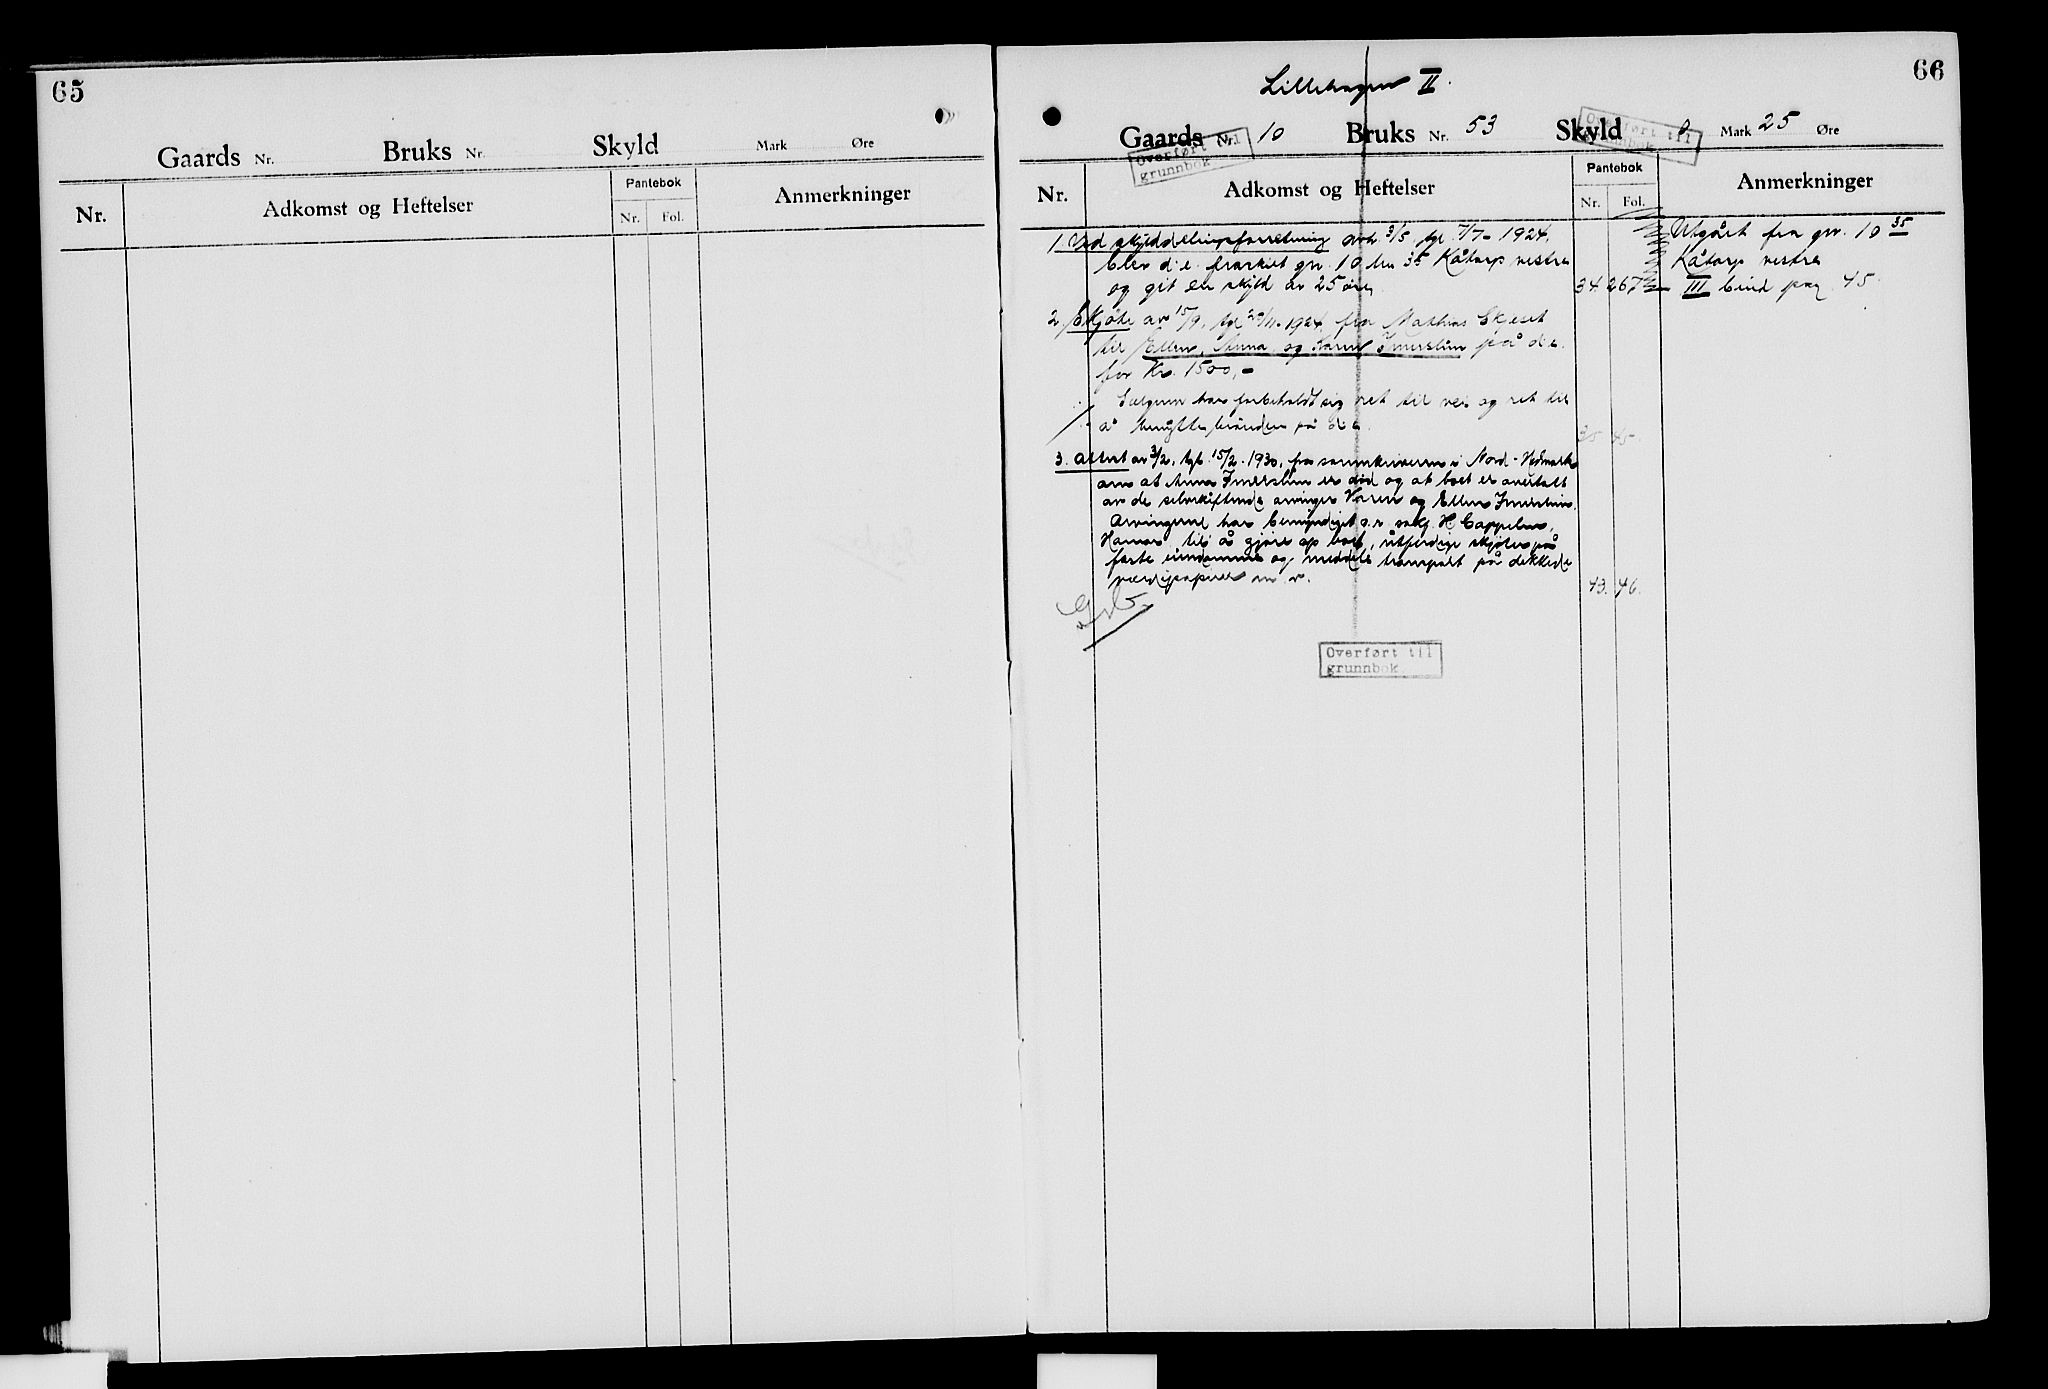 65
Gaards Nr. Bruks Nr. Skyld Mark Øre
Nr. Adkomst og Heftelser Pantebok Anmerkninger
Nr. Fol.
66
Lillehagen II.
Gaards Nr. 10 Bruks Nr. 53 Skyld 0 Mark 25 Øre
Overført til
grunnbok
Overført til
grunnbok
Nr. Adkomst og Heftelser Pantebok Anmerkninger
Nr. Fol.
1 Ved skylddelingsforretning avh. 3/5, tgl. 7/7- 1924.
blev d.e. fraskilt gnr. 10 bnr 35 Kåtorp vestre
og git en skyld av 25 øre 34. 267
Utgått fra gnr. 10 35
Kåtorp vestre
III bind pag. 45.
2 Skjøte av 15/9, tgl 20/11-1924, fra Mathias Ekeset
til Ellen, Anna og Karen Imerslun på d.e.
for Kr. 1500,-
Sælgeren har forbeholdt sig ret til vei og ret til
å benytte brønden på d.e. 35 45.
3. Attest av 3/2, tgl. 15/2-1930, fra sorenskriveren i Nord-Hedmark
om at Anna Imerslun er død og at boet er overtatt
av de selvskiftende arvinger Karen og Ellen Imerslun.
Arvingene har bemyndiget o.r. sakf. H Cappelen,
Hamar til å gjøre op boet, utferdige skjøter på
faste eiendomme og meddele transport på dekkede
værdipapirer m.v. 43. 46.
Overført til
grunnbok.